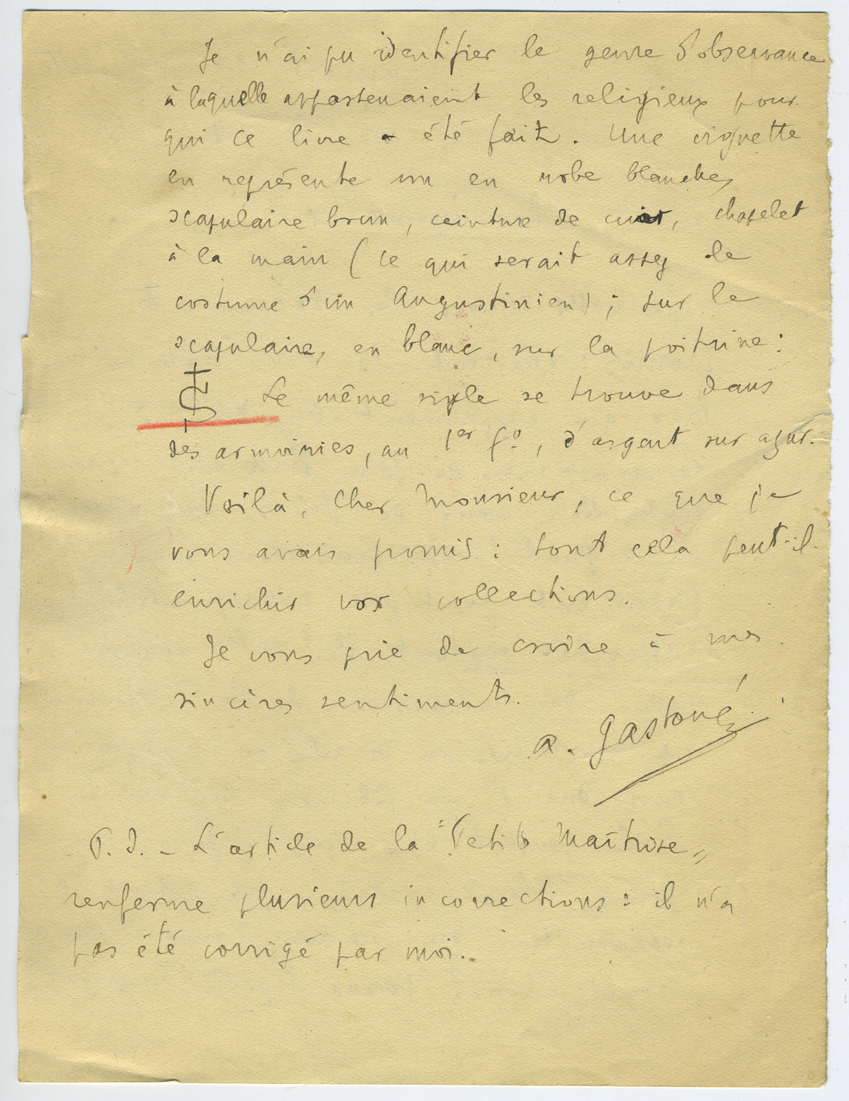 Je n'ai pu identifier le genre d'observance
à laquelle appartenaient les religieux pour
qui ce livre a été fait. Une vignette
en représente un en robe blanche,
scapulaire brun, ceinture de cuir, chapelet
à la main (ce qui serait assez le
costume d'un Augustinien) ; sur le
scapulaire, en blanc, sur la poitrine :
Le même sigle se trouve dans
des armoiries, au 1er fo, d'argent sur azur.
Voilà, cher Monsieur, ce que je
vous avais promis : tout cela peut-il
enrichir vos collections.
Je vous prie de croire à mes
sincères sentiments.
A. Gastoué
P. S. — L'article de la "Petite Maîtrise"
renferme plusieurs incorrections : il n'a
pas été corrigé par moi.